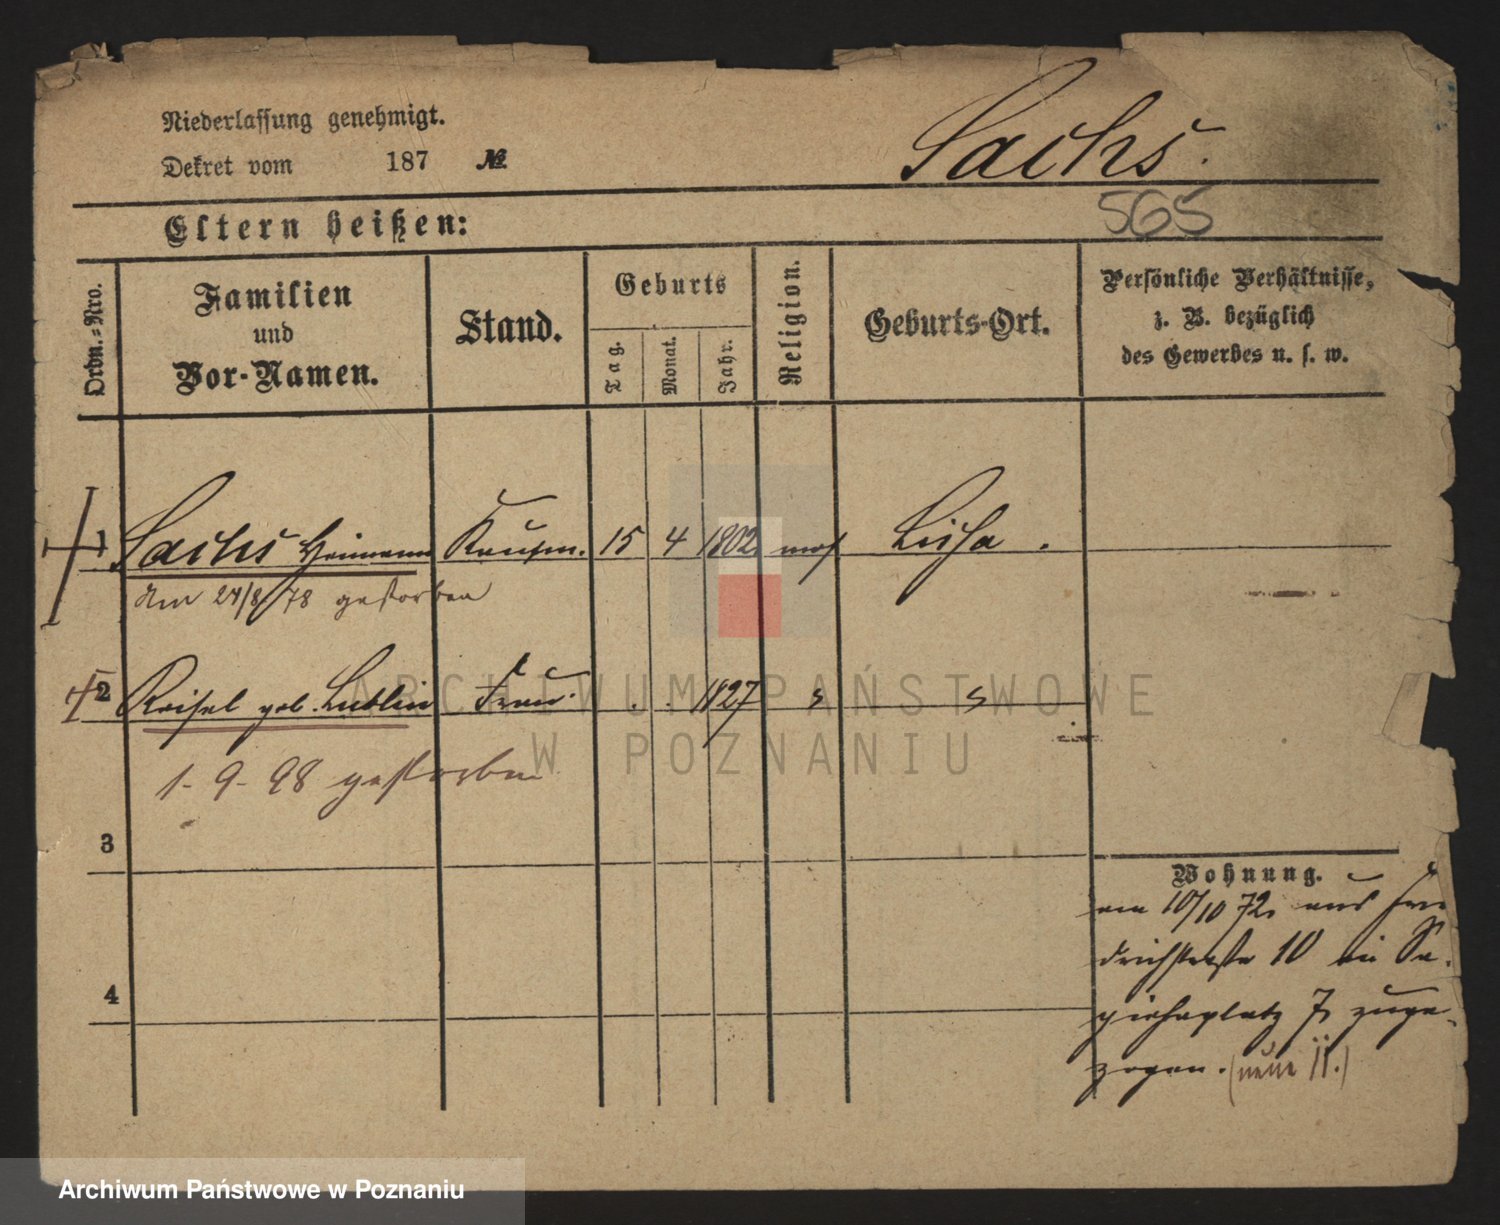 Niederlassung genehmigt.
Dekret vom 187 №
Sachs.
565
Eltern heißen:
Ordn.-Nro.
Familien
und
Vor-Namen.
Stand.
Geburts
Tag.
Monat.
Jahr.
Religion.
Geburts-Ort.
Persönliche Verhältnisse,
z. B. bezüglich
des Gewerbes u. s. w.
1 Sachs Heimann Kaufm. 15 4 1802 mos Lissa.
Am 24/8 78 gestorben
2 Reisel geb. Lublin Frau 1827 " "
1-9-98 gestorben
3
Wohnung.
am 10/10 72 aus Frie
drichstraße 10 in Sa-
piehaplatz 7 zuge-
zogen. (neue II.)
4
ARCHIWUM PAŃSTWOWE
W POZNANIU
Archiwum Państwowe w Poznaniu